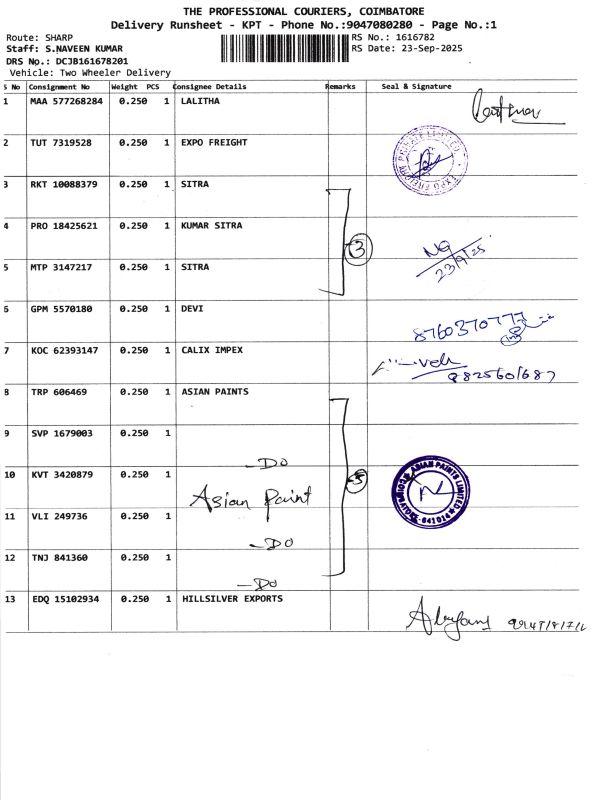 THE PROFESSIONAL COURIERS, COIMBATORE
Delivery Runsheet - KPT - Phone No.:9047080280 - Page No.:1
Route: SHARP
Staff: S.NAVEEN KUMAR
DRS No.: DCJB161678201
Vehicle: Two Wheeler Delivery
RS No.: 1616782
RS Date: 23-Sep-2025
S No Consignment No Weight PCS Consignee Details Remarks Seal & Signature
1 MAA 577268284 0.250 1 LALITHA
2 TUT 7319528 0.250 1 EXPO FREIGHT
EXPO FREIGHT PRIVATE LIMITED
3 RKT 10088379 0.250 1 SITRA
4 PRO 18425621 0.250 1 KUMAR SITRA
3
23/9/25
5 MTP 3147217 0.250 1 SITRA
6 GPM 5570180 0.250 1 DEVI
8760370777
7 KOC 62393147 0.250 1 CALIX IMPEX
8825601687
8 TRP 606469 0.250 1 ASIAN PAINTS
9 SVP 1679003 0.250 1
-Do
10 KVT 3420879 0.250 1 Asian Paint
5
ASIAN PAINTS LIMITED COIMBATORE-641014
11 VLI 249736 0.250 1
-Do
12 TNJ 841360 0.250 1
-Do
13 EDQ 15102934 0.250 1 HILLSILVER EXPORTS